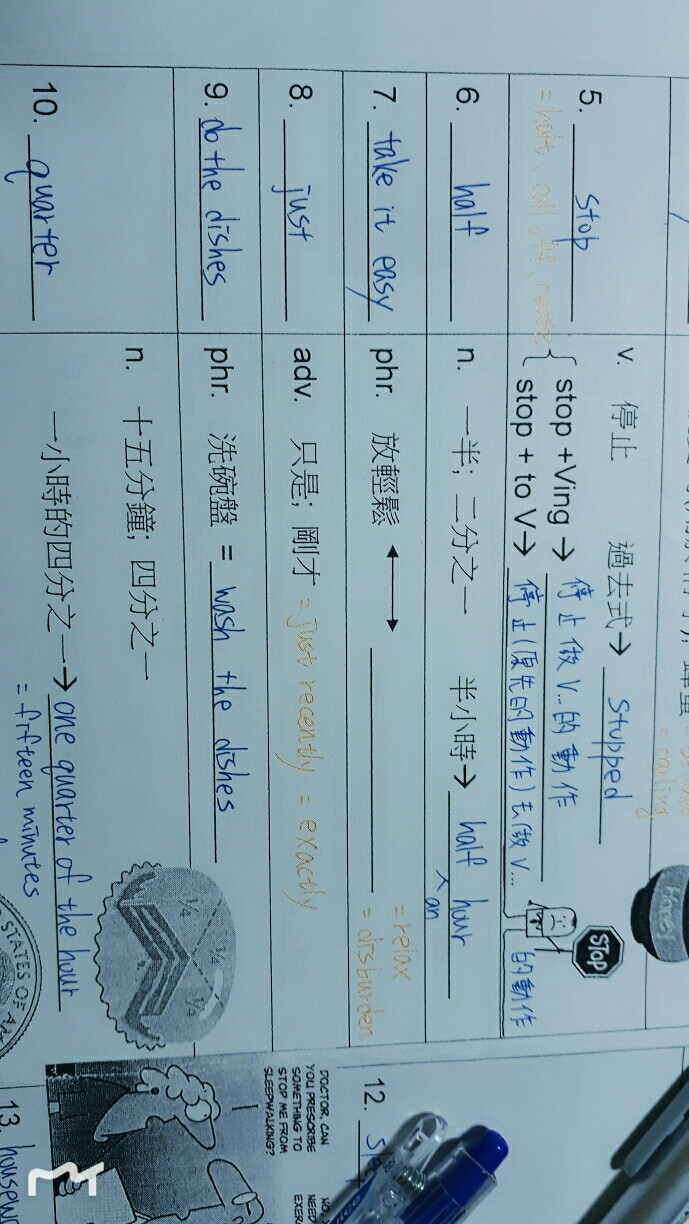 5. stop
= halt、call off、cease
v. 停止 過去式→ stopped
stop +Ving → 停止做V...的動作
stop + to V→ 停止(原先的動作)去做V...的動作
STOP
6. half
n. 一半; 二分之一 半小時→ half an hour
7. take it easy
phr. 放輕鬆 ←→
= relax
= disburden
8. just
adv. 只是; 剛才 = just recently = exactly
9. do the dishes
phr. 洗碗盤 = wash the dishes
10. quarter
n. 十五分鐘; 四分之一
一小時的四分之一→ one quarter of the hour
= fifteen minutes
1/4
1/4
1/4
STATES OF
12.
DOCTOR, CAN
YOU PRESCRIBE
SOMETHING TO
STOP ME FROM
SLEEPWALKING?
13.